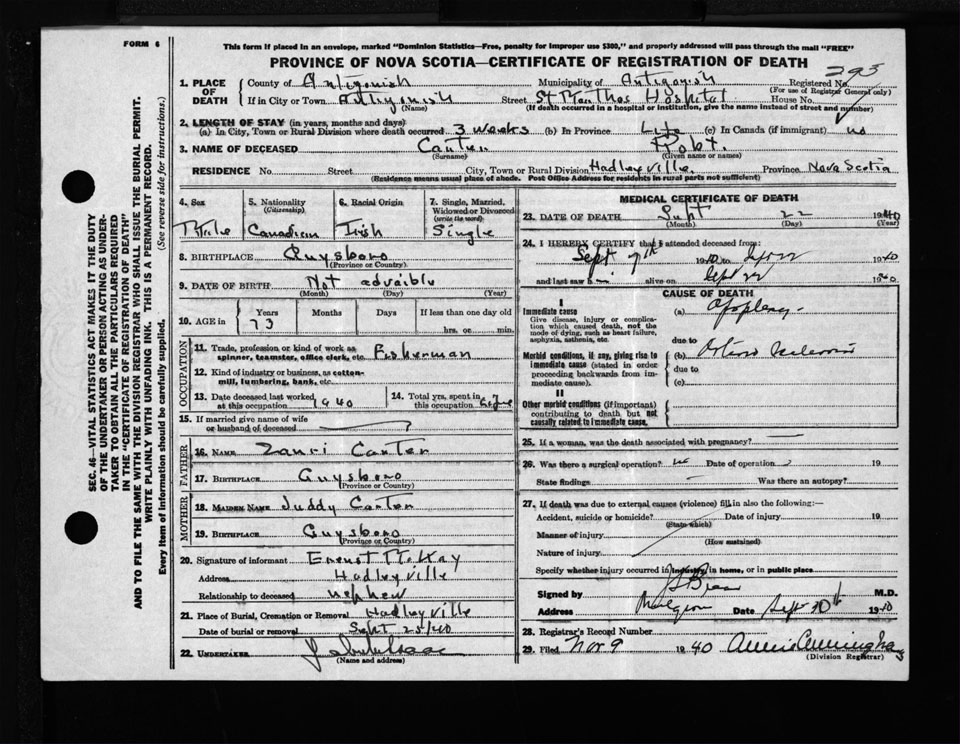 FORM 6
This form if placed in an envelope, marked "Dominion Statistics—Free, penalty for improper use $300," and properly addressed will pass through the mail "FREE"
PROVINCE OF NOVA SCOTIA—CERTIFICATE OF REGISTRATION OF DEATH
1. PLACE OF DEATH
County of Antigonish Municipality of Antigonish Registered No. 293
(For use of Registrar General only)
If in City or Town Antigonish Street St Marthas Hospital House No.
(Name) (If death occurred in a hospital or institution, give the name instead of street and number)
2. LENGTH OF STAY (in years, months and days)
(a) In City, Town or Rural Division where death occurred 3 weeks (b) In Province Life (c) In Canada (if immigrant) no
3. NAME OF DECEASED Canter Robt.
(Surname) (Given name or names)
RESIDENCE No. Street City, Town or Rural Division Hadleyville. Province Nova Scotia
(Residence means usual place of abode. Post Office Address for residents in rural parts not sufficient)
4. Sex
Male
5. Nationality
(Citizenship)
Canadian
6. Racial Origin
Irish
7. Single, Married,
Widowed or Divorced
(write the word)
Single
8. BIRTHPLACE Guysboro
(Province or Country)
9. DATE OF BIRTH Not
(Month) (Day) (Year)
10. AGE in
Years
73
Months
Days
If less than one day old
hrs. or min.
OCCUPATION
11. Trade, profession or kind of work as
spinner, teamster, office clerk, etc. Fisherman
12. Kind of industry or business, as cotton-
mill, lumbering, bank, etc.
13. Date deceased last worked
at this occupation 1940
14. Total yrs. spent in
this occupation Life
15. If married give name of wife
or husband of deceased
FATHER
16. NAME Canter
17. BIRTHPLACE Guysboro
(Province or Country)
MOTHER
18. MAIDEN NAME Juddy Canter
19. BIRTHPLACE Guysboro
(Province or Country)
20. Signature of informant Ernest McKay
Address Hadleyville
Relationship to deceased nephew
21. Place of Burial, Cremation or Removal Hadleyville
Date of burial or removal Sept 25/40
22. UNDERTAKER
(Name and address)
MEDICAL CERTIFICATE OF DEATH
23. DATE OF DEATH Sept 22 1940
(Month) (Day) (Year)
24. I HEREBY CERTIFY that I attended deceased from:
Sept 7th 1940 to Sept 22 1940
and last saw h im alive on Sept 22 1940
CAUSE OF DEATH
I
Immediate cause
Give disease, injury or complica-
tion which caused death, not the
mode of dying, such as heart failure,
asphyxia, asthenia, etc.
(a) Apoplexy
due to
Morbid conditions, if any, giving rise to
immediate cause (stated in order
proceeding backwards from im-
mediate cause).
(b)
due to
(c)
II
Other morbid conditions (if important)
contributing to death but not
causally related to immediate cause.
25. If a woman, was the death associated with pregnancy?
26. Was there a surgical operation? no Date of operation 19
State findings Was there an autopsy?
27. If death was due to external causes (violence) fill in also the following:—
Accident, suicide or homicide? Date of injury 19
(State which)
Manner of injury
(How sustained)
Nature of injury
Specify whether injury occurred in industry, in home, or in public place
Signed by M.D.
Address Mulgrave Date Sept 30th 1940
28. Registrar's Record Number
29. Filed Nov 9 1940 Annie Cunningham
(Division Registrar)
SEC. 46—VITAL STATISTICS ACT MAKES IT THE DUTY
OF THE UNDERTAKER OR PERSON ACTING AS UNDER-
TAKER TO OBTAIN ALL THE PARTICULARS REQUIRED
IN THE "CERTIFICATE OF REGISTRATION OF DEATH"
AND TO FILE THE SAME WITH THE DIVISION REGISTRAR WHO SHALL ISSUE THE BURIAL PERMIT.
WRITE PLAINLY WITH UNFADING INK. THIS IS A PERMANENT RECORD.
Every item of information should be carefully supplied. (See reverse side for instructions.)